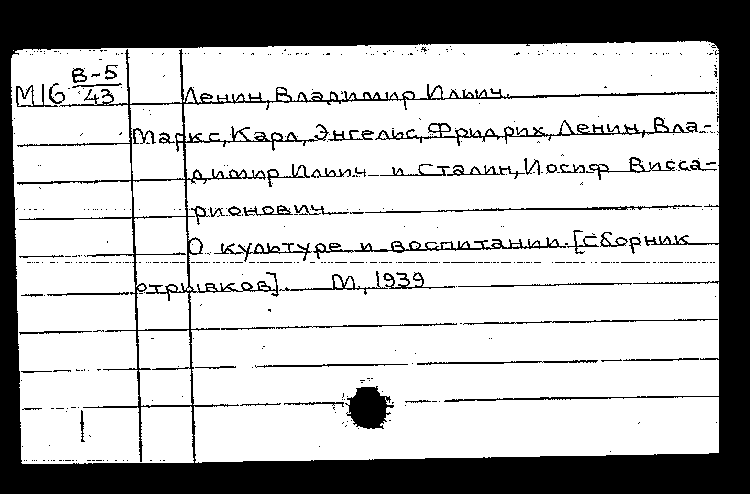 В-5
М16 43
Ленин, Владимир Ильич.
Маркс, Карл, Энгельс, Фридрих, Ленин, Вла-
димир Ильич и Сталин, Иосиф Висса-
рионович
О культуре и воспитании. [Сборник
отрывков]. М., 1939